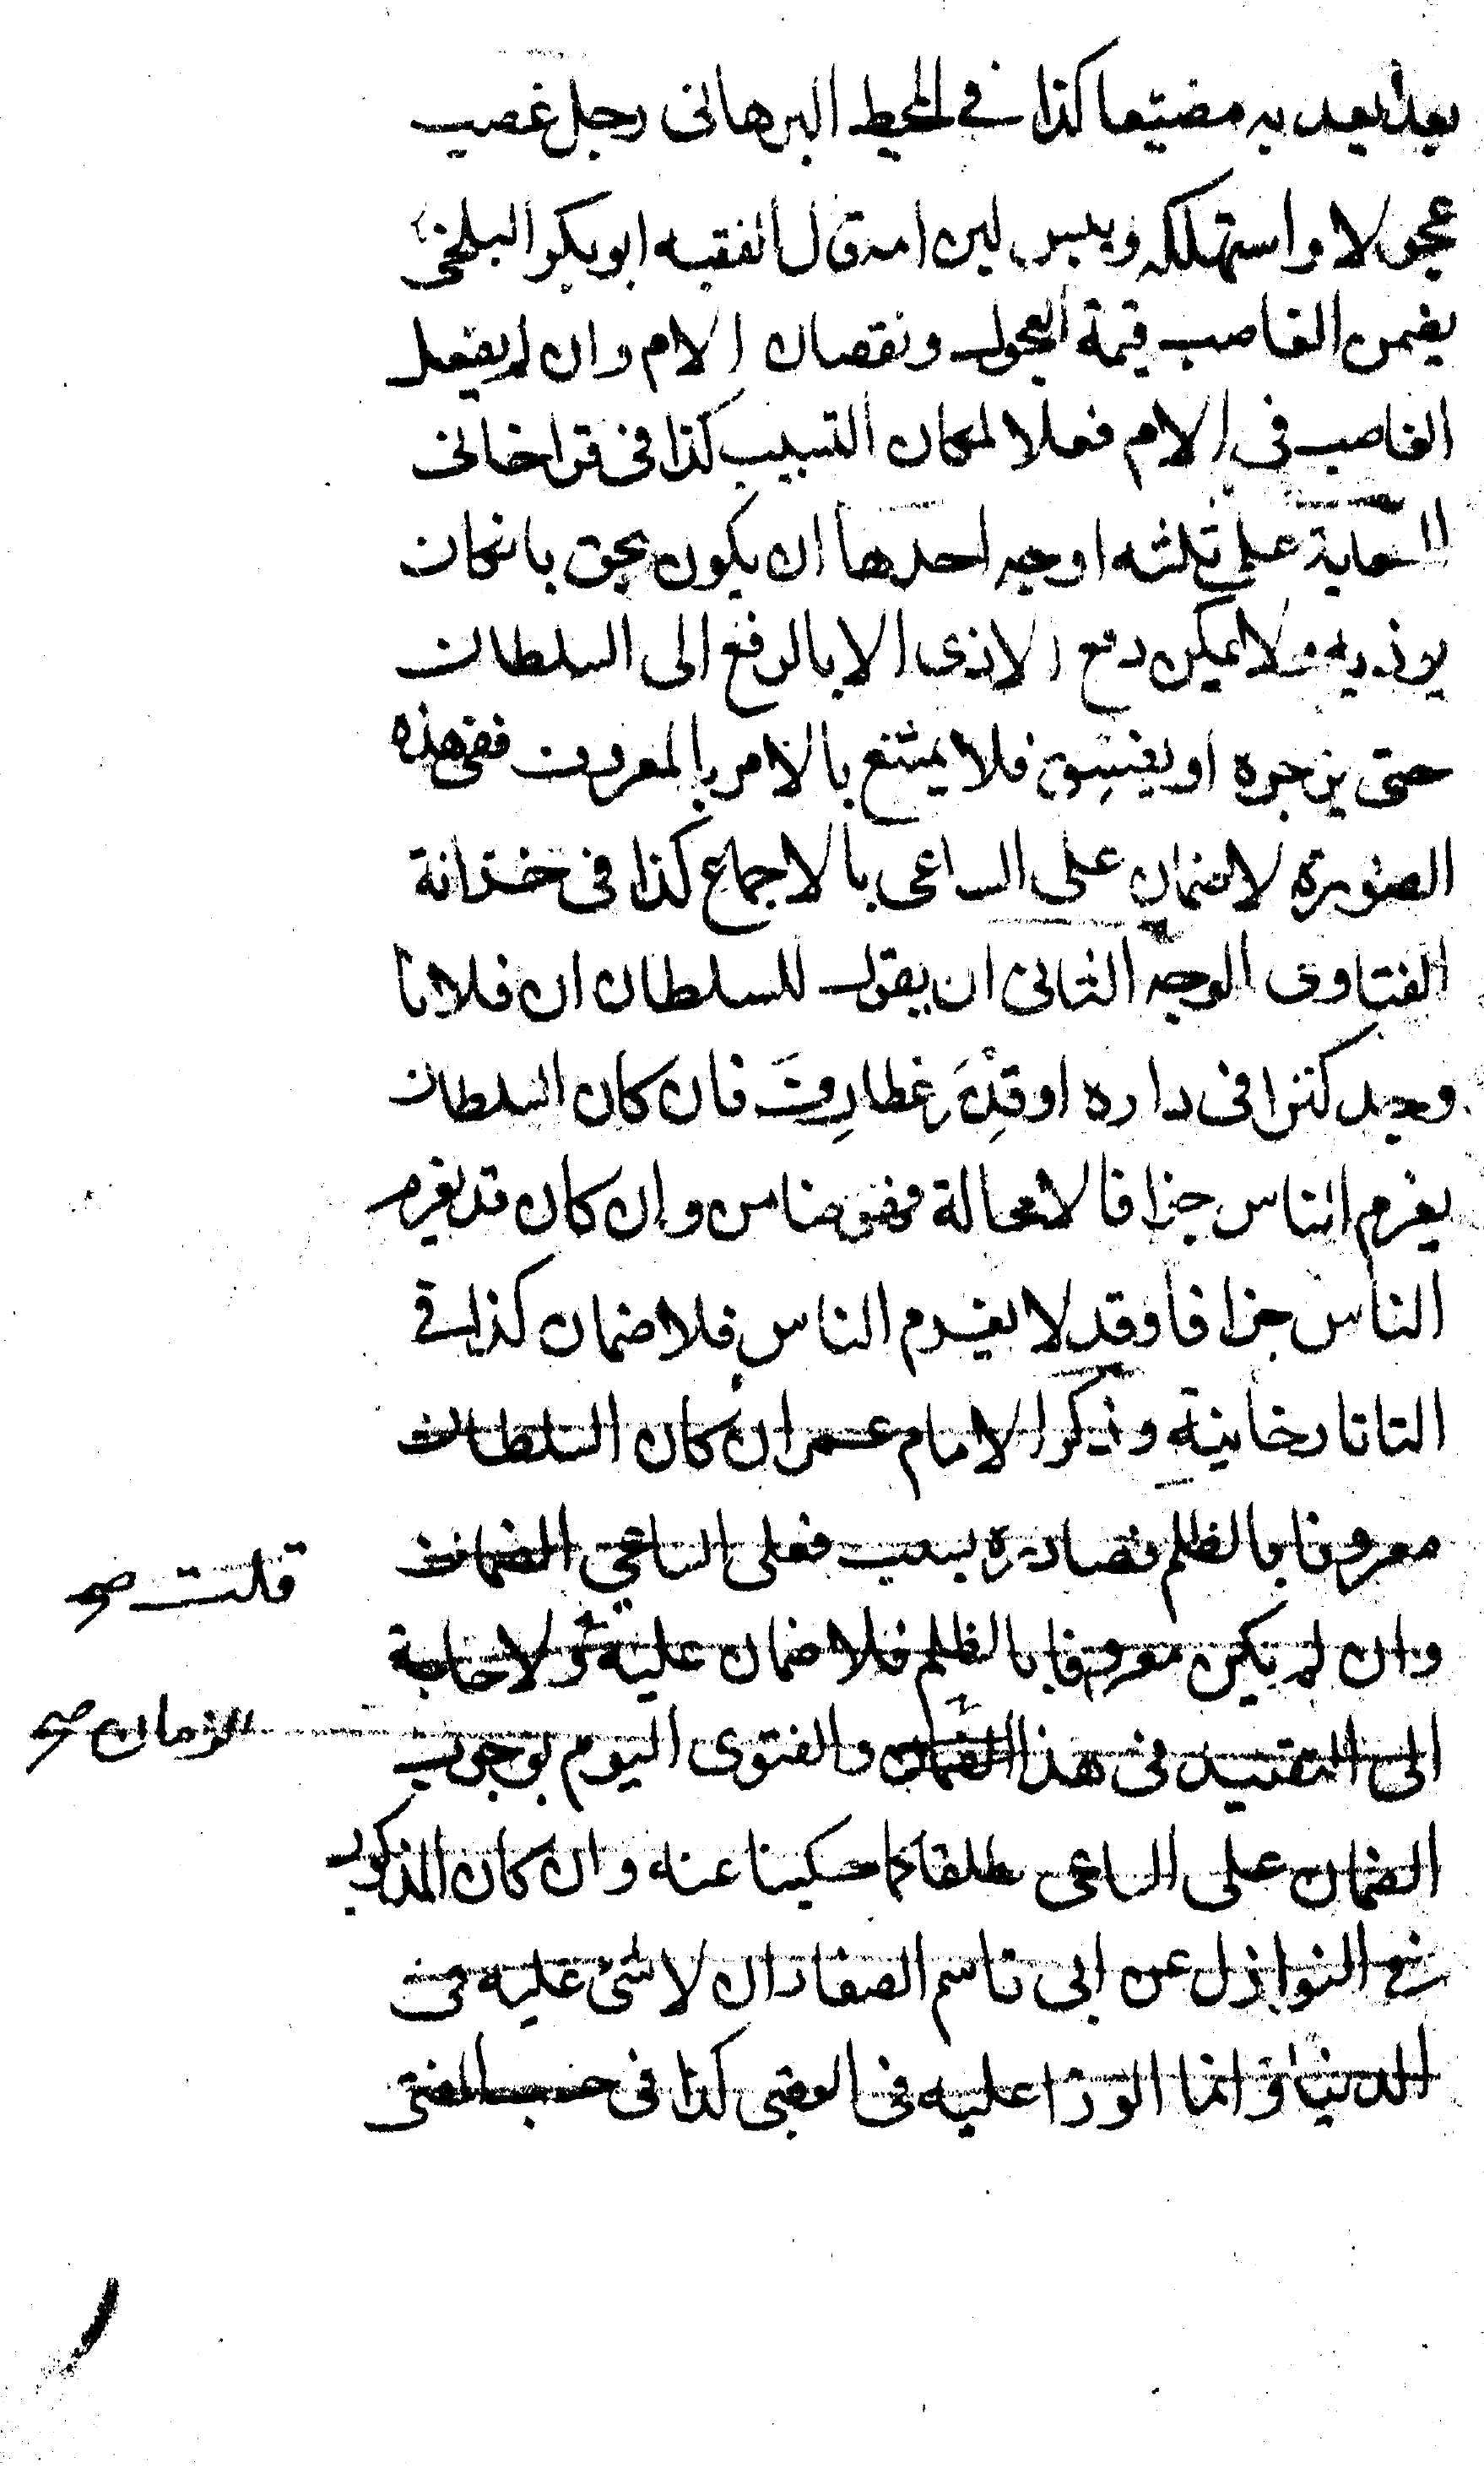 يعد به مضيعا كذا في المحيط البرهانى رجل غصب
عجولا واستهلكه ويبس لبن امه قال الفقيه ابو بكر البلخى
يضمن الغاصب قيمة العجول ونقصان الام وان لم يفعل
الغاصب فى الام فعلا لمكان التسبيب كذا فى قراخانى
السعاية على ثلثه اوجه احدها ان يكون بحق بان كان
يوذيه ولا يمكن دفع الاذى الا بالرفع الى السلطان
حتى يزجره او يفسق فلا يمتنع بالامر بالمعروف ففى هذه
الصورة لا ضمان على الساعى بالاجماع كذا فى خزانة
الفتاوى الوجه الثانى ان يقول للسلطان ان فلانا
وجد كنزا فى داره او قدر غطارف فان كان السلطان
يغرم الناس جزافا لا محالة فهو ضامن وان كان قد يغرم
الناس جزافا وقد لا يغرم الناس فلا ضمان كذا في
التاتارخانية وذكر الامام عمر ان كان السلطان
معروفا بالظلم فصادره بسبب فعلى الساعي الضمان
قلت صح
وان لم يكن معروفا بالظلم فلا ضمان عليه ولا حاجة
الى التقييد فى هذا الضمان والفتوى اليوم بوجوب
الزمان صح
الضمان على الساعى مطلقا كما حكينا عنه وان كان المذكور
في النوازل عن ابى قاسم الصفار ان لا شئ عليه فى
الدنيا وانما الوزر عليه فى العقبى كذا فى حسب المفتى